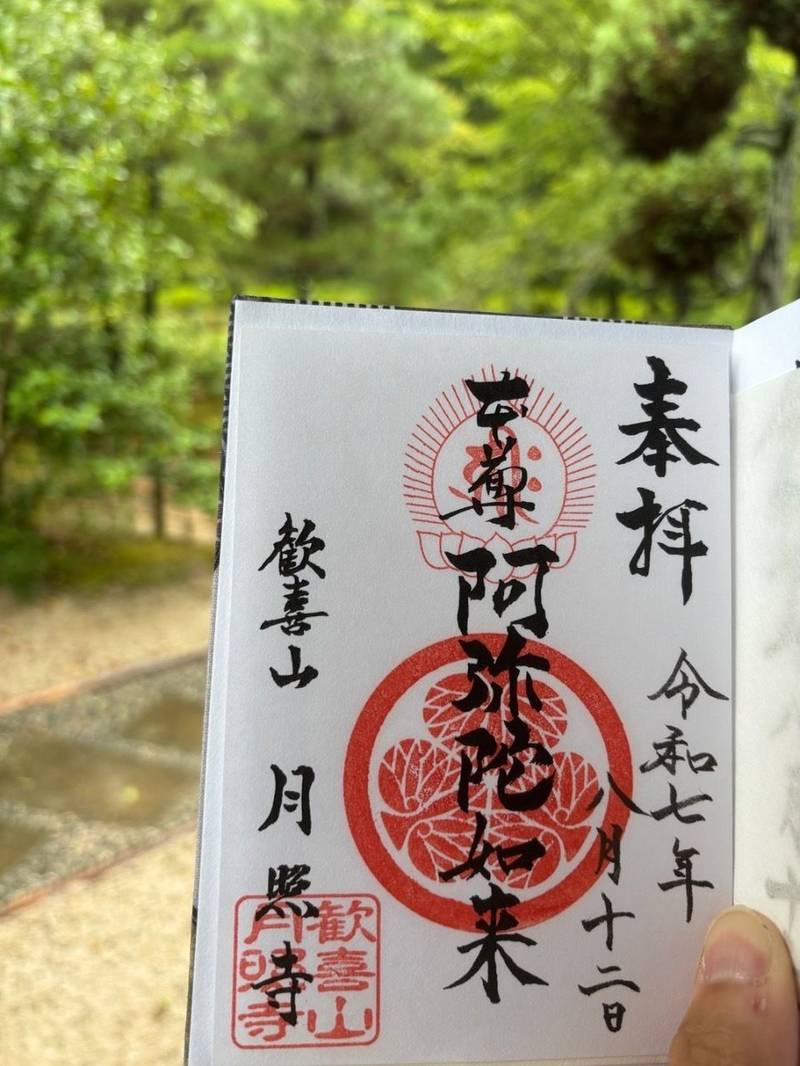 奉拝
令和七年
八月十二日
本尊
阿弥陀如来
歓喜山
月照寺
歓喜山
月照寺